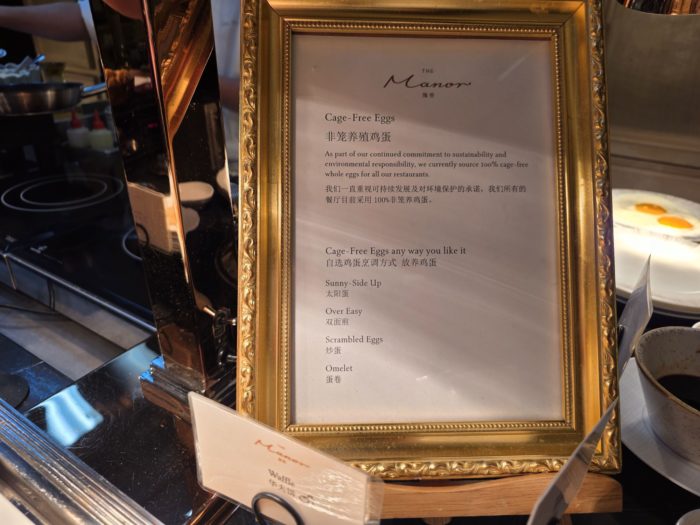 THE
Manor
Cage-Free Eggs
非笼养殖鸡蛋
As part of our continued commitment to sustainability and
environmental responsibility, we currently source 100% cage-free
whole eggs for all our restaurants.
我们一直重视可持续发展及对环境保护的承诺，我们所有的
餐厅目前采用 100%非笼养鸡蛋。
Cage-Free Eggs any way you like it
自选鸡蛋烹调方式 放养鸡蛋
Sunny-Side Up
太阳蛋
Over Easy
双面煎
Scrambled Eggs
炒蛋
Omelet
蛋卷
Manor
Waffle
华夫饼